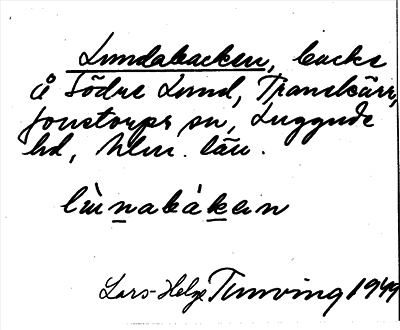 Lundabacken, backe
å Södra Lund, Tranekärr,
Jonstorps sn, Luggude
hd, Mlm. län.
lùnabákan
Lars-Helge Tunving 1949